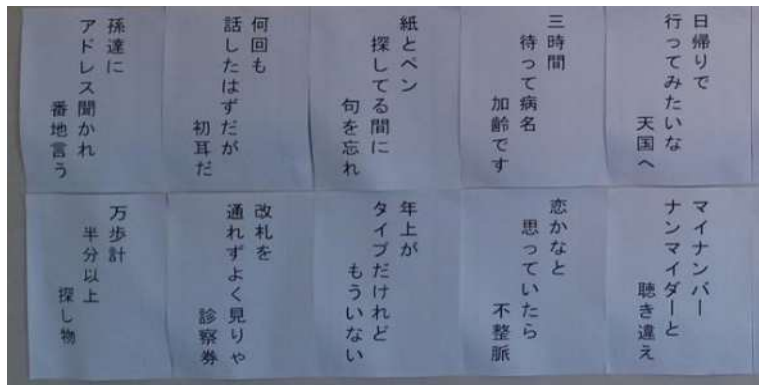 日帰りで
行ってみたいな
天国へ
三時間
待って病名
加齢です
紙とペン
探してる間に
句を忘れ
何回も
話したはずだが
初耳だ
孫達に
アドレス聞かれ
番地言う
マイナンバー
ナンマイダーと
聴き違え
恋かなと
思っていたら
不整脈
年上が
タイプだけれど
もういない
改札を
通れずよく見りゃ
診察券
万歩計
半分以上
探し物